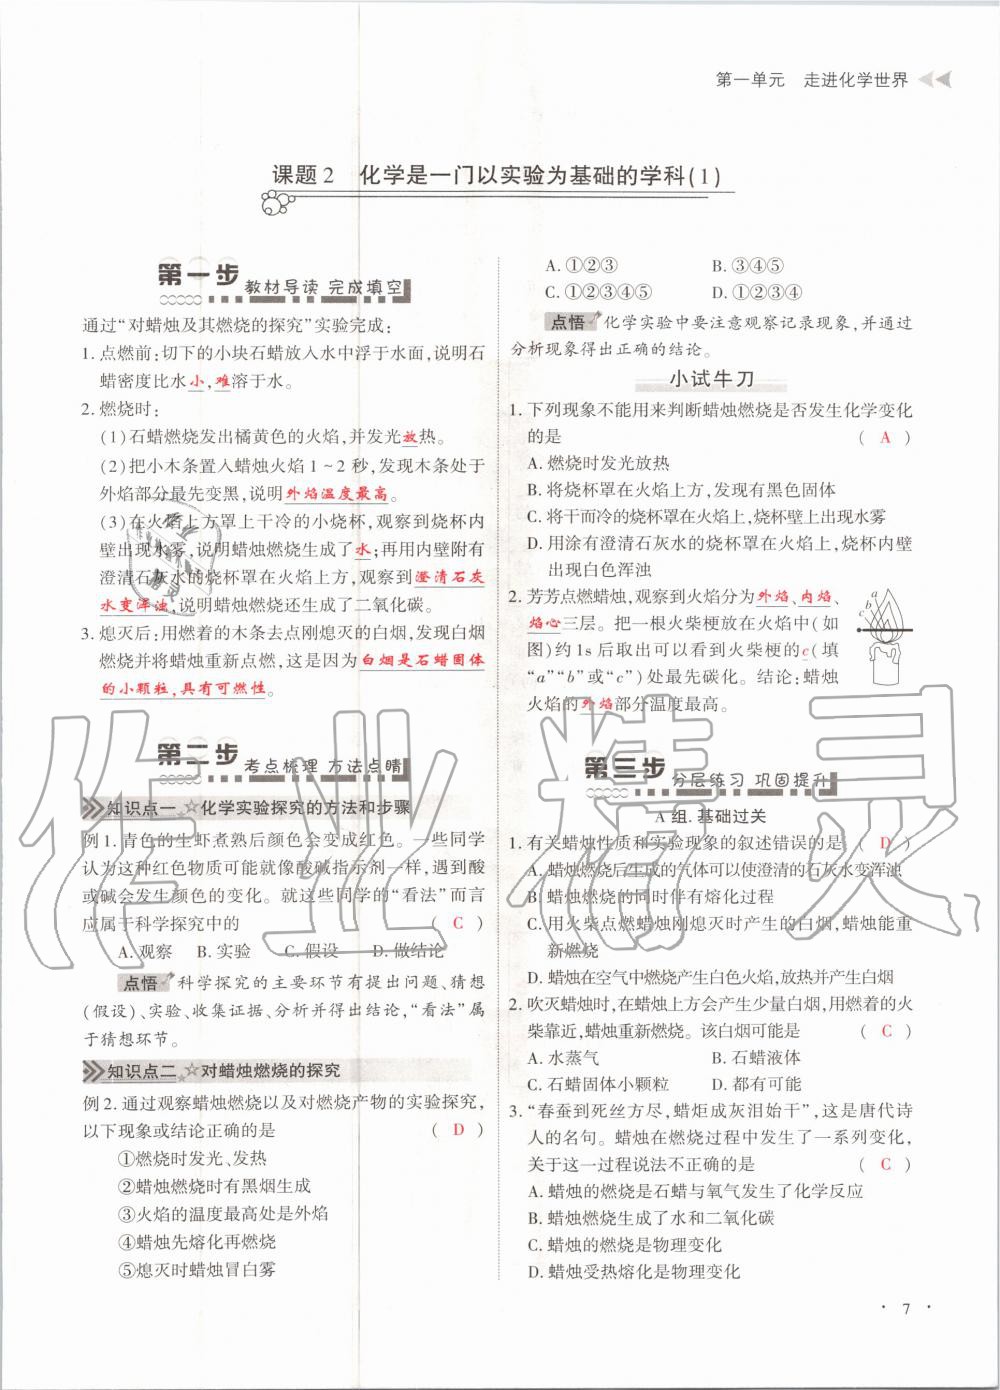 第一单元　走进化学世界
课题2　化学是一门以实验为基础的学科(1)
第一步 教材导读 完成填空
通过“对蜡烛及其燃烧的探究”实验完成:
1. 点燃前:切下的小块石蜡放入水中浮于水面,说明石
蜡密度比水小,难溶于水。
2. 燃烧时:
(1)石蜡燃烧发出橘黄色的火焰,并发光放热。
(2)把小木条置入蜡烛火焰1~2秒,发现木条处于
外焰部分最先变黑,说明外焰温度最高。
(3)在火焰上方罩上干冷的小烧杯,观察到烧杯内
壁出现水雾,说明蜡烛燃烧生成了水;再用内壁附有
澄清石灰水的烧杯罩在火焰上方,观察到澄清石灰
水变浑浊,说明蜡烛燃烧还生成了二氧化碳。
3. 熄灭后:用燃着的木条去点刚熄灭的白烟,发现白烟
燃烧并将蜡烛重新点燃,这是因为白烟是石蜡固体
的小颗粒,具有可燃性。
第二步 考点梳理 方法点睛
知识点一 ☆化学实验探究的方法和步骤
例1. 青色的生虾煮熟后颜色会变成红色。一些同学
认为这种红色物质可能就像酸碱指示剂一样,遇到酸
或碱会发生颜色的变化。就这些同学的“看法”而言
应属于科学探究中的 ( C )
A. 观察 B. 实验 C. 假设 D. 做结论
点悟 科学探究的主要环节有提出问题、猜想
(假设)、实验、收集证据、分析并得出结论,“看法”属
于猜想环节。
知识点二 ☆对蜡烛燃烧的探究
例2. 通过观察蜡烛燃烧以及对燃烧产物的实验探究,
以下现象或结论正确的是 ( D )
①燃烧时发光、发热
②蜡烛燃烧时有黑烟生成
③火焰的温度最高处是外焰
④蜡烛先熔化再燃烧
⑤熄灭时蜡烛冒白雾
A. ①②③ B. ③④⑤
C. ①②③④⑤ D. ①②③④
点悟 化学实验中要注意观察记录现象,并通过
分析现象得出正确的结论。
小试牛刀
1. 下列现象不能用来判断蜡烛燃烧是否发生化学变化
的是 ( A )
A. 燃烧时发光放热
B. 将烧杯罩在火焰上方,发现有黑色固体
C. 将干而冷的烧杯罩在火焰上,烧杯壁上出现水雾
D. 用涂有澄清石灰水的烧杯罩在火焰上方,烧杯内壁
出现白色浑浊
2. 芳芳点燃蜡烛,观察到火焰分为外焰、内焰、
焰心三层。把一根火柴梗放在火焰中(如
图)约1s后取出可以看到火柴梗的c(填
“a”“b”或“c”)处最先碳化。结论:蜡烛
火焰的外焰部分温度最高。
a
b
c
第三步 分层练习 巩固提升
A组. 基础过关
1. 有关蜡烛性质和实验现象的叙述错误的是 ( D )
A. 蜡烛燃烧后生成的气体可以使澄清的石灰水变浑浊
B. 蜡烛燃烧的同时伴有熔化过程
C. 用火柴点燃蜡烛刚熄灭时产生的白烟,蜡烛能重
新燃烧
D. 蜡烛在空气中燃烧产生白色火焰,放热并产生白烟
2. 吹灭蜡烛时,在蜡烛上方会产生少量白烟,用燃着的火
柴靠近,蜡烛重新燃烧。该白烟可能是 ( C )
A. 水蒸气 B. 石蜡液体
C. 石蜡固体小颗粒 D. 都有可能
3. “春蚕到死丝方尽,蜡炬成灰泪始干”,这是唐代诗
人的名句。蜡烛在燃烧过程中发生了一系列变化,
关于这一过程说法不正确的是 ( C )
A. 蜡烛的燃烧是石蜡与氧气发生了化学反应
B. 蜡烛燃烧生成了水和二氧化碳
C. 蜡烛的燃烧是物理变化
D. 蜡烛受热熔化是物理变化
· 7 ·
作业精灵